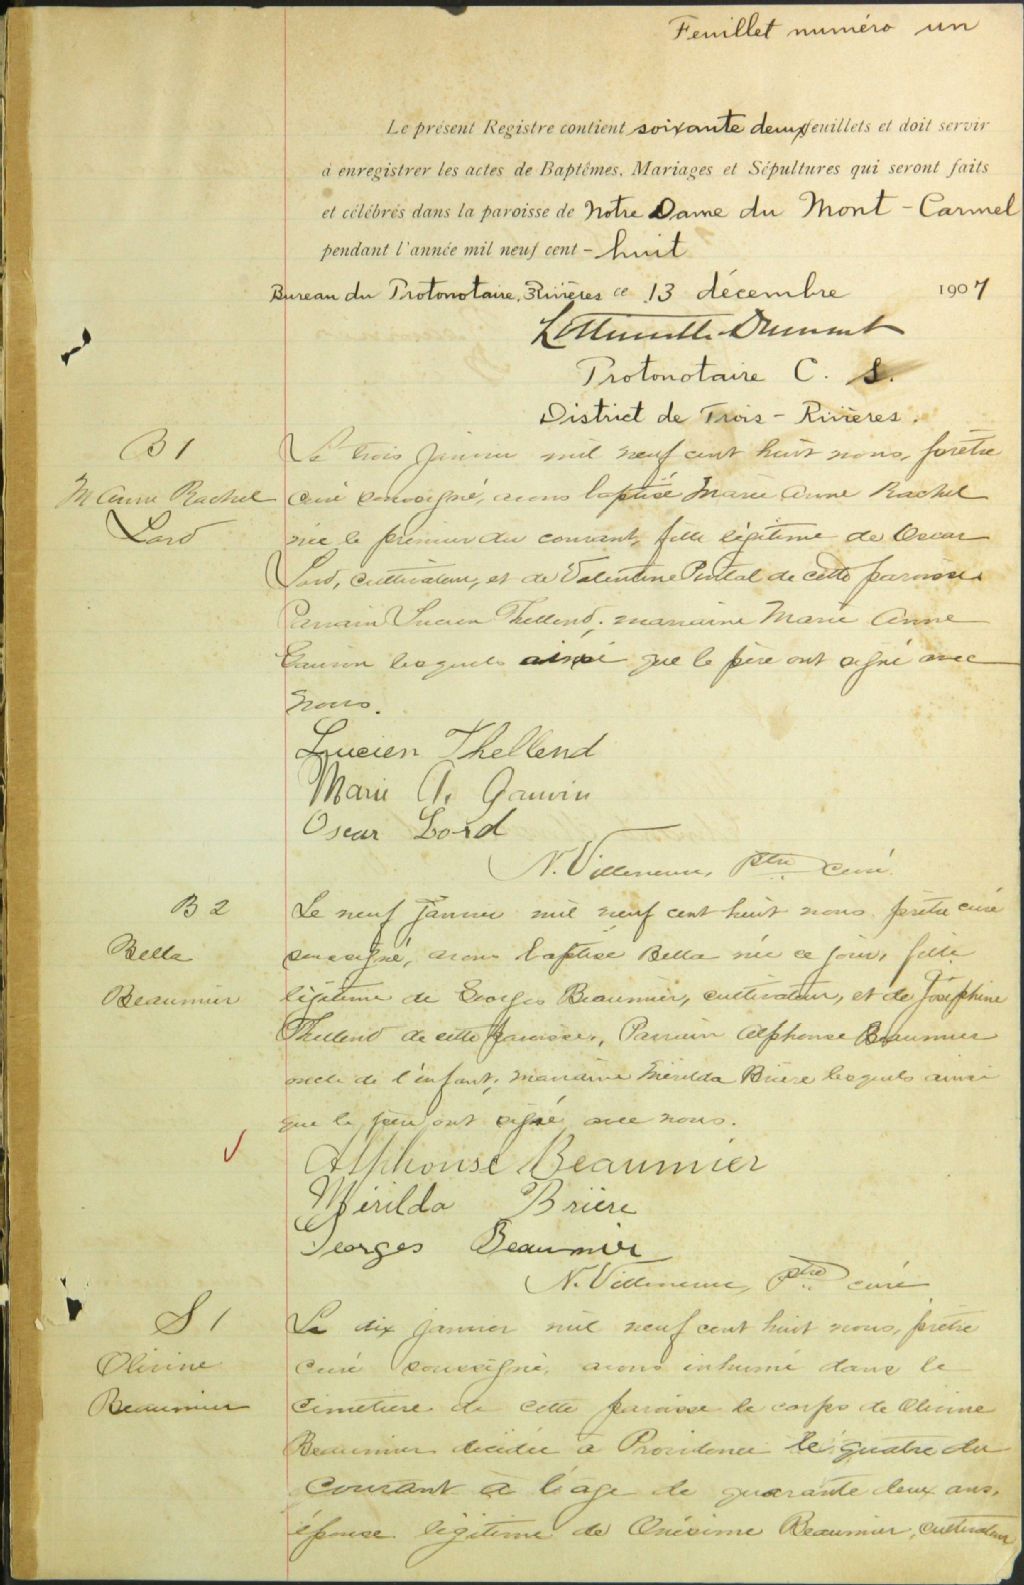 Feuillet numéro un
Le présent Registre contient soixante deux feuillets et doit servir
à enregistrer les actes de Baptêmes, Mariages et Sépultures qui seront faits
et célébrés dans la paroisse de Notre Dame du Mont-Carmel
pendant l'année mil neuf cent-huit
Bureau du Protonotaire, 3Rivières ce 13 décembre 1907
Protonotaire C. S.
District de Trois-Rivières.
B 1
M Anne Rachel
Lord
Le trois janvier mil neuf cent huit nous, prêtre
curé soussigné, avons baptisé Marie Anne Rachel
née le premier du courant, fille légitime de Oscar
Lord, cultivateur, et de Valentine Pintal de cette paroisse.
Parrain Lucien Thellend; marraine Marie Anne
Gauvin lesquels ainsi que le père ont signé avec
nous.
Lucien Thellend
Marie A. Gauvin
Oscar Lord
N. Villeneuve, Ptre curé.
B 2
Bella
Beaumier
Le neuf janvier mil neuf cent huit nous prêtre curé
soussigné, avons baptisé Bella née ce jour, fille
légitime de Georges Beaumier, cultivateur, et de Joséphine
Thellend de cette paroisse, Parrain Alphonse Beaumier
oncle de l'enfant; marraine Mérilda Brière lesquels ainsi
que le père ont signé avec nous.
Alphonse Beaumier
Mérilda Brière
Georges Beaumier
N. Villeneuve, Ptre curé
S 1
Olivine
Beaumier
Le dix janvier mil neuf cent huit nous, prêtre
curé soussigné, avons inhumé dans le
cimetière de cette paroisse le corps de Olivine
Beaumier décédée à Providence le quatre du
courant à l'âge de quarante deux ans,
épouse légitime de Onésime Beaumier, cultivateur